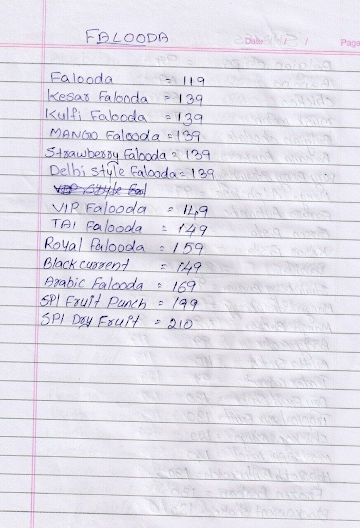 FALOODA
Date / / Page
Falooda = 119
Kesar Falooda = 139
Kulfi Falooda = 139
MANGO Falooda = 139
Strawberry Falooda = 139
Delhi style Falooda = 139
VIP Falooda = 149
TAI Falooda = 149
Royal Falooda = 159
Black current = 149
Arabic Falooda = 169
SPl Fruit Punch = 199
SPl Dry Fruit = 210